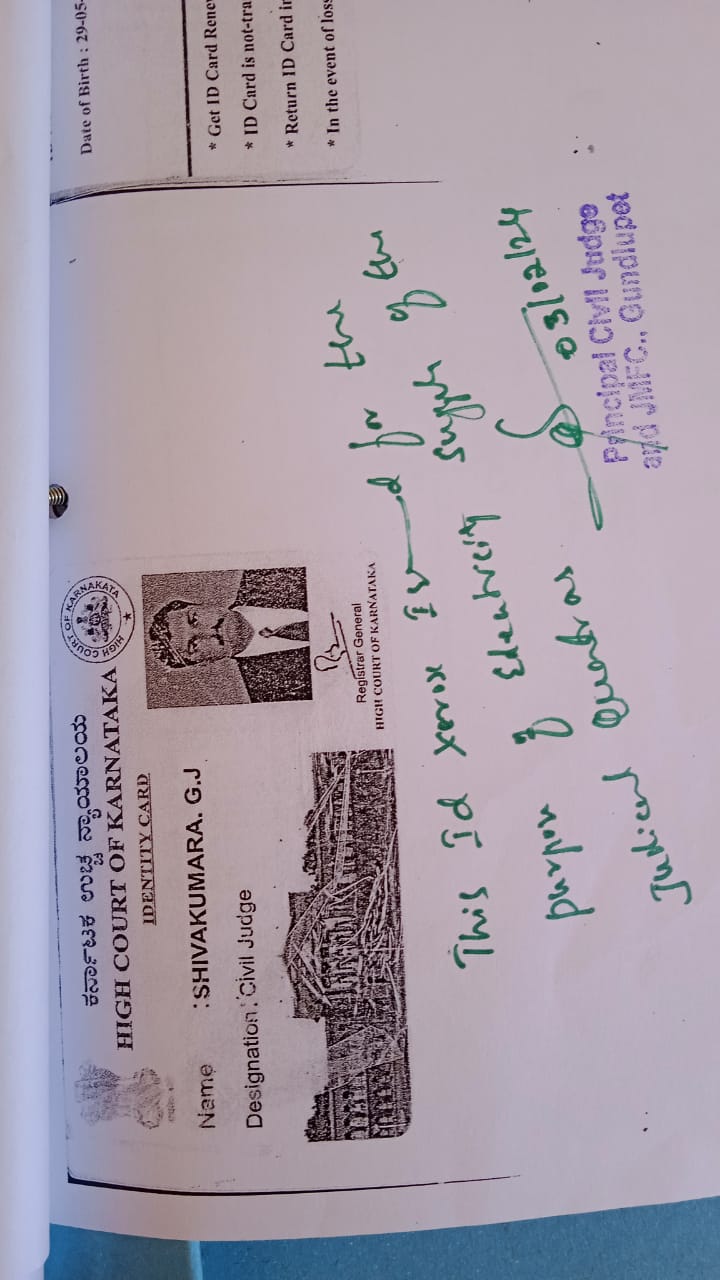 ಕರ್ನಾಟಕ ಉಚ್ಚ ನ್ಯಾಯಾಲಯ
HIGH COURT OF KARNATAKA
IDENTITY CARD
HIGH COURT OF KARNATAKA
Name : SHIVAKUMARA. G.J
Designation : Civil Judge
Registrar General
HIGH COURT OF KARNATAKA
Date of Birth : 29-05-
* Get ID Card Rene
* ID Card is not-tra
* Return ID Card in
* In the event of loss
This Id xerox for the
of Electricity supply of the
Judicial
03/02/24
Principal Civil Judge
and JMFC., Gundlupet